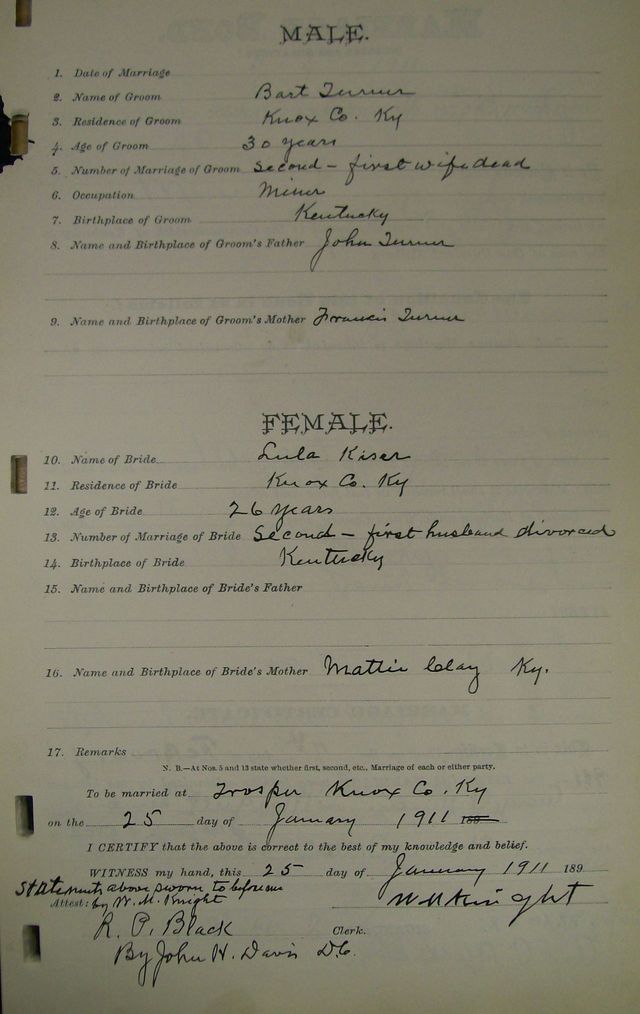 MALE.
1. Date of Marriage
2. Name of Groom Bart Turner
3. Residence of Groom Knox Co. Ky
4. Age of Groom 30 years
5. Number of Marriage of Groom Second - first wife dead
6. Occupation Miner
7. Birthplace of Groom Kentucky
8. Name and Birthplace of Groom's Father John Turner
9. Name and Birthplace of Groom's Mother Francis Turner
FEMALE.
10. Name of Bride Lula Kiser
11. Residence of Bride Knox Co. Ky
12. Age of Bride 26 years
13. Number of Marriage of Bride Second - first husband divorced
14. Birthplace of Bride Kentucky
15. Name and Birthplace of Bride's Father
16. Name and Birthplace of Bride's Mother Mattie Clay Ky.
17. Remarks
N. B.—At Nos. 5 and 13 state whether first, second, etc., Marriage of each or either party.
To be married at Trosper Knox Co. Ky
on the 25 day of January 1911 189
I CERTIFY that the above is correct to the best of my knowledge and belief.
WITNESS my hand, this 25 day of January 1911 189
Statements above sworn to before me
Attest: by W. M. Knight W M Knight
R. P. Black Clerk.
By John H. Davis D.C.